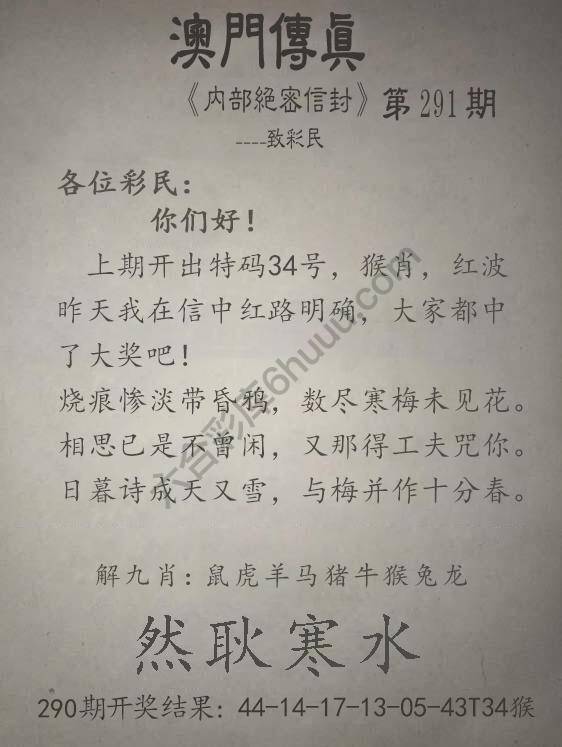 澳門傳眞
《内部絕密信封》第291期
----致彩民
各位彩民：
你们好！
上期开出特码34号，猴肖，红波
昨天我在信中红路明确，大家都中
了大奖吧！
烧痕惨淡带昏鸦，数尽寒梅未见花。
相思已是不曾闲，又那得工夫咒你。
日暮诗成天又雪，与梅并作十分春。
解九肖：鼠虎羊马猪牛猴兔龙
然耿寒水
290期开奖结果：44-14-17-13-05-43T34猴
六合彩库6huuu.com